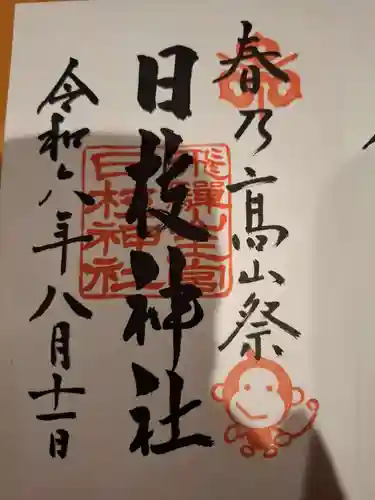 春乃高山祭
日枝神社
令和六年八月十一日
飛騨山王宮
日枝神社